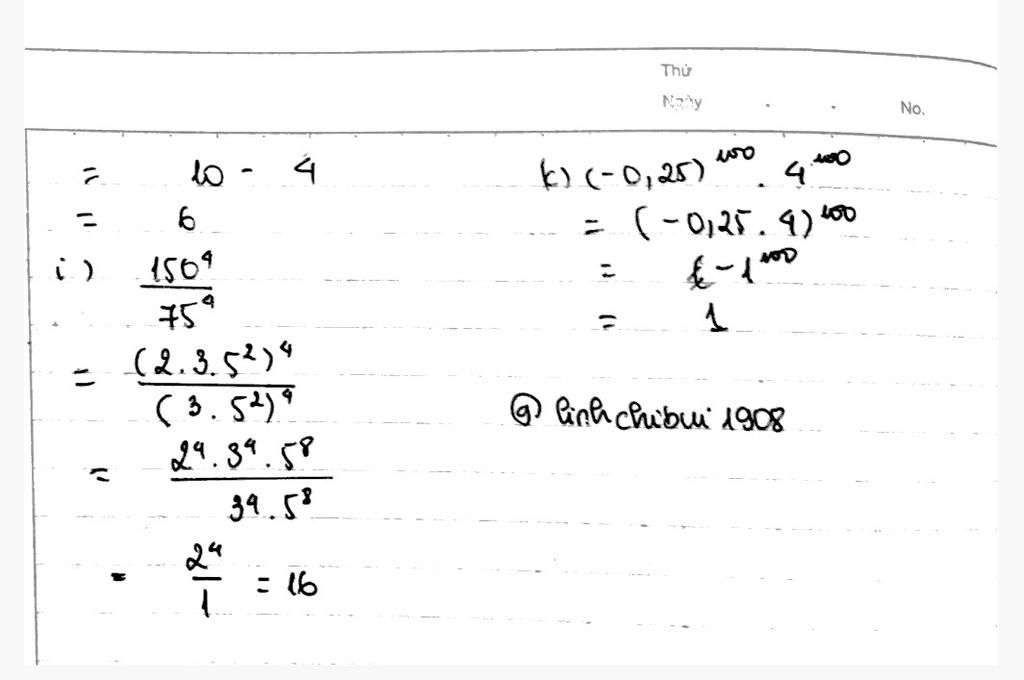 Thứ
Ngày . . No.
= 10 - 4
= 6
i) 150⁴ / 75⁴
= (2.3.5²)⁴ / (3.5²)⁴
= 2⁴.3⁴.5⁸ / 3⁴.5⁸
= 2⁴ / 1 = 16
k) (-0,25)¹⁰⁰ . 4¹⁰⁰
= (-0,25.4)¹⁰⁰
= -1¹⁰⁰
= 1
@ linhchibui 1908